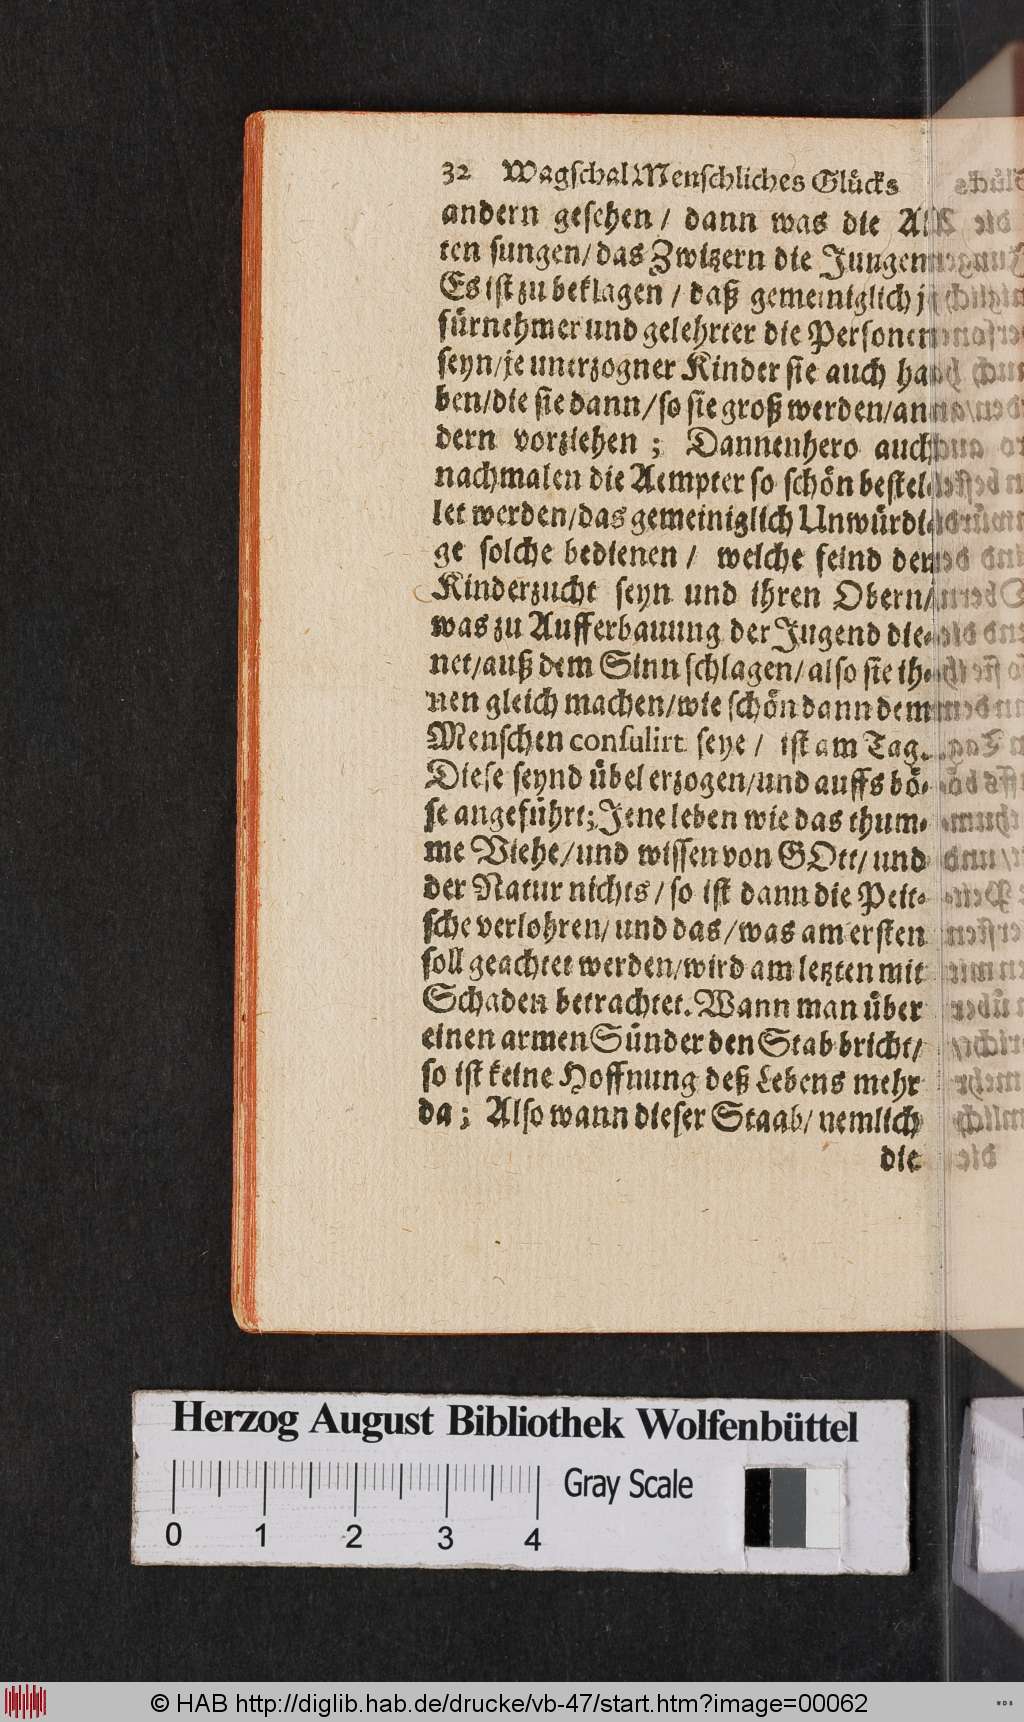 32 Wagschal Menschliches Glücks
andern gesehen / dann was die Al-
ten sungen/das Zwitzern die Jungen
Es ist zu beklagen / daß gemeiniglich je
fürnehmer und gelehrter die Personen
seyn/je unerzogner Kinder sie auch ha-
ben/die sie dann/so sie groß werden/an-
dern vorziehen ; Dannenhero auch
nachmalen die Aempter so schön bestel-
let werden/das gemeiniglich Unwürdi-
ge solche bedienen / welche feind der
Kinderzucht seyn und ihren Obern/
was zu Aufferbauung der Jugend die-
net/auß dem Sinn schlagen/also sie ih-
nen gleich machen/wie schön dann dem
Menschen consulirt seye / ist am Tag.
Diese seynd übel erzogen/und auffs bö-
se angeführt; Jene leben wie das thum-
me Viehe/und wissen von GOtt/und
der Natur nichts/so ist dann die Peit-
sche verlohren/und das/was am ersten
soll geachtet werden/wird am letzten mit
Schaden betrachtet. Wann man über
einen armen Sünder den Stab bricht/
so ist keine Hoffnung deß Lebens mehr
da ; Also wann dieser Staab/nemlich
die
Herzog August Bibliothek Wolfenbüttel
Gray Scale
0 1 2 3 4
© HAB http://diglib.hab.de/drucke/vb-47/start.htm?image=00062